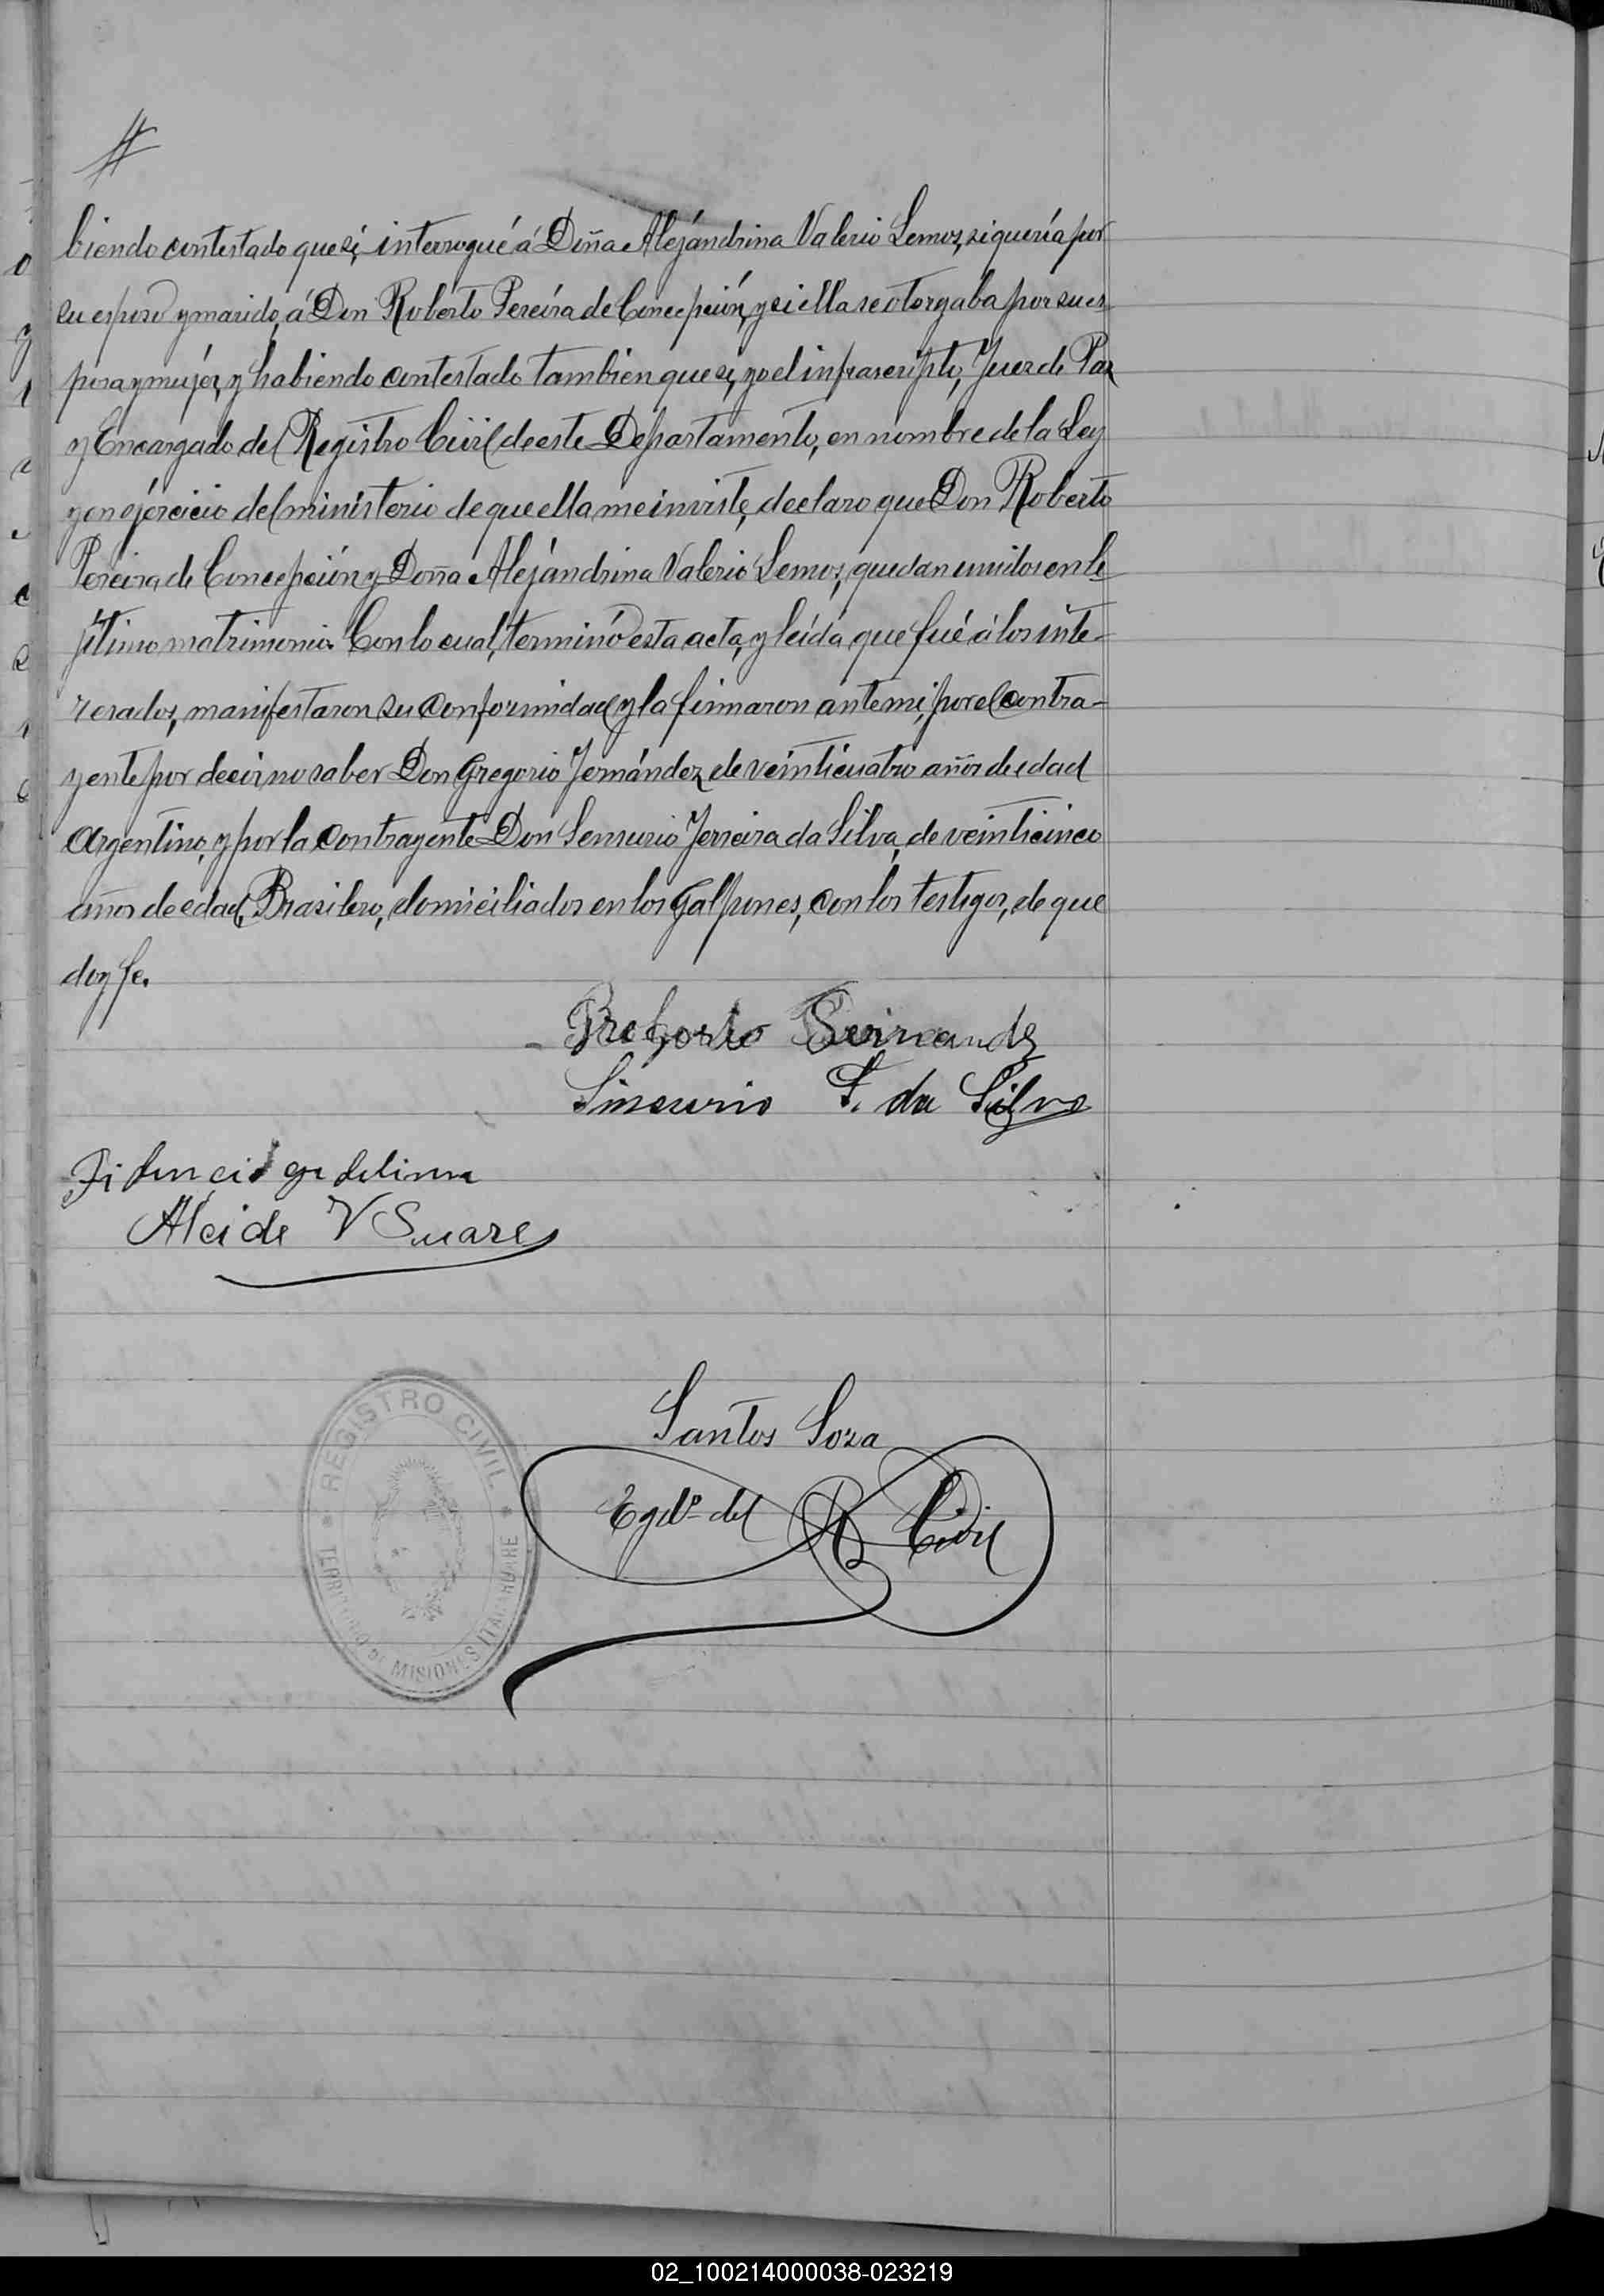 #
biendo contestado que sí, interrogué á Doña Alejándrina Valerio Lemos, si quería por
su esposo y marido, á Don Roberto Pereira de Concepción, y si ella se otorgaba por su es-
posa y mujér, y habiendo contestado tambien que sí, yo el infrascripto, Juez de Paz
y Encargado del Registro Civil de este Departamento, en nombre de la Ley
y en ejércicio del ministerio de que ella me inviste, declaro que Don Roberto
Pereira de Concepción y Doña Alejándrina Valerio Lemos, quedan unidos en le
jítimo matrimonio. Con lo cual, terminó esta acta, y leída que fué á los inte-
resados, manifestaron su conformidad y la firmaron ante mi, por el contra-
yente por decir no saber Don Gregorio Fernández de veinticuatro años de edad
Argentino, y por la contrayente Don Sensurio Ferreira da Silva, de veinticinco
años de edad, Brasilero, domiciliados en los Galpones, con los testigos, de que
doy fe.
Gregorio Fernandz
F. da Silva
Alcide V Suares
Santos Soza
Egdo. del R. Civil
REGISTRO CIVIL
TERRITORIO DE MISIONES ITACARUARE
02_100214000038-023219